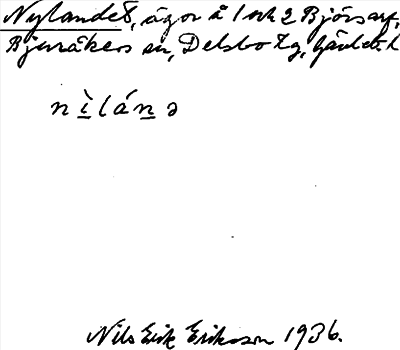 Nylandet, ägor å 1 och 2 Bjórsarf,
Bjuråkers sn, Delsbo tg, Gävleb. l
n ì̱ l á ṉ ə
Nils Erik Eriksson 1936.